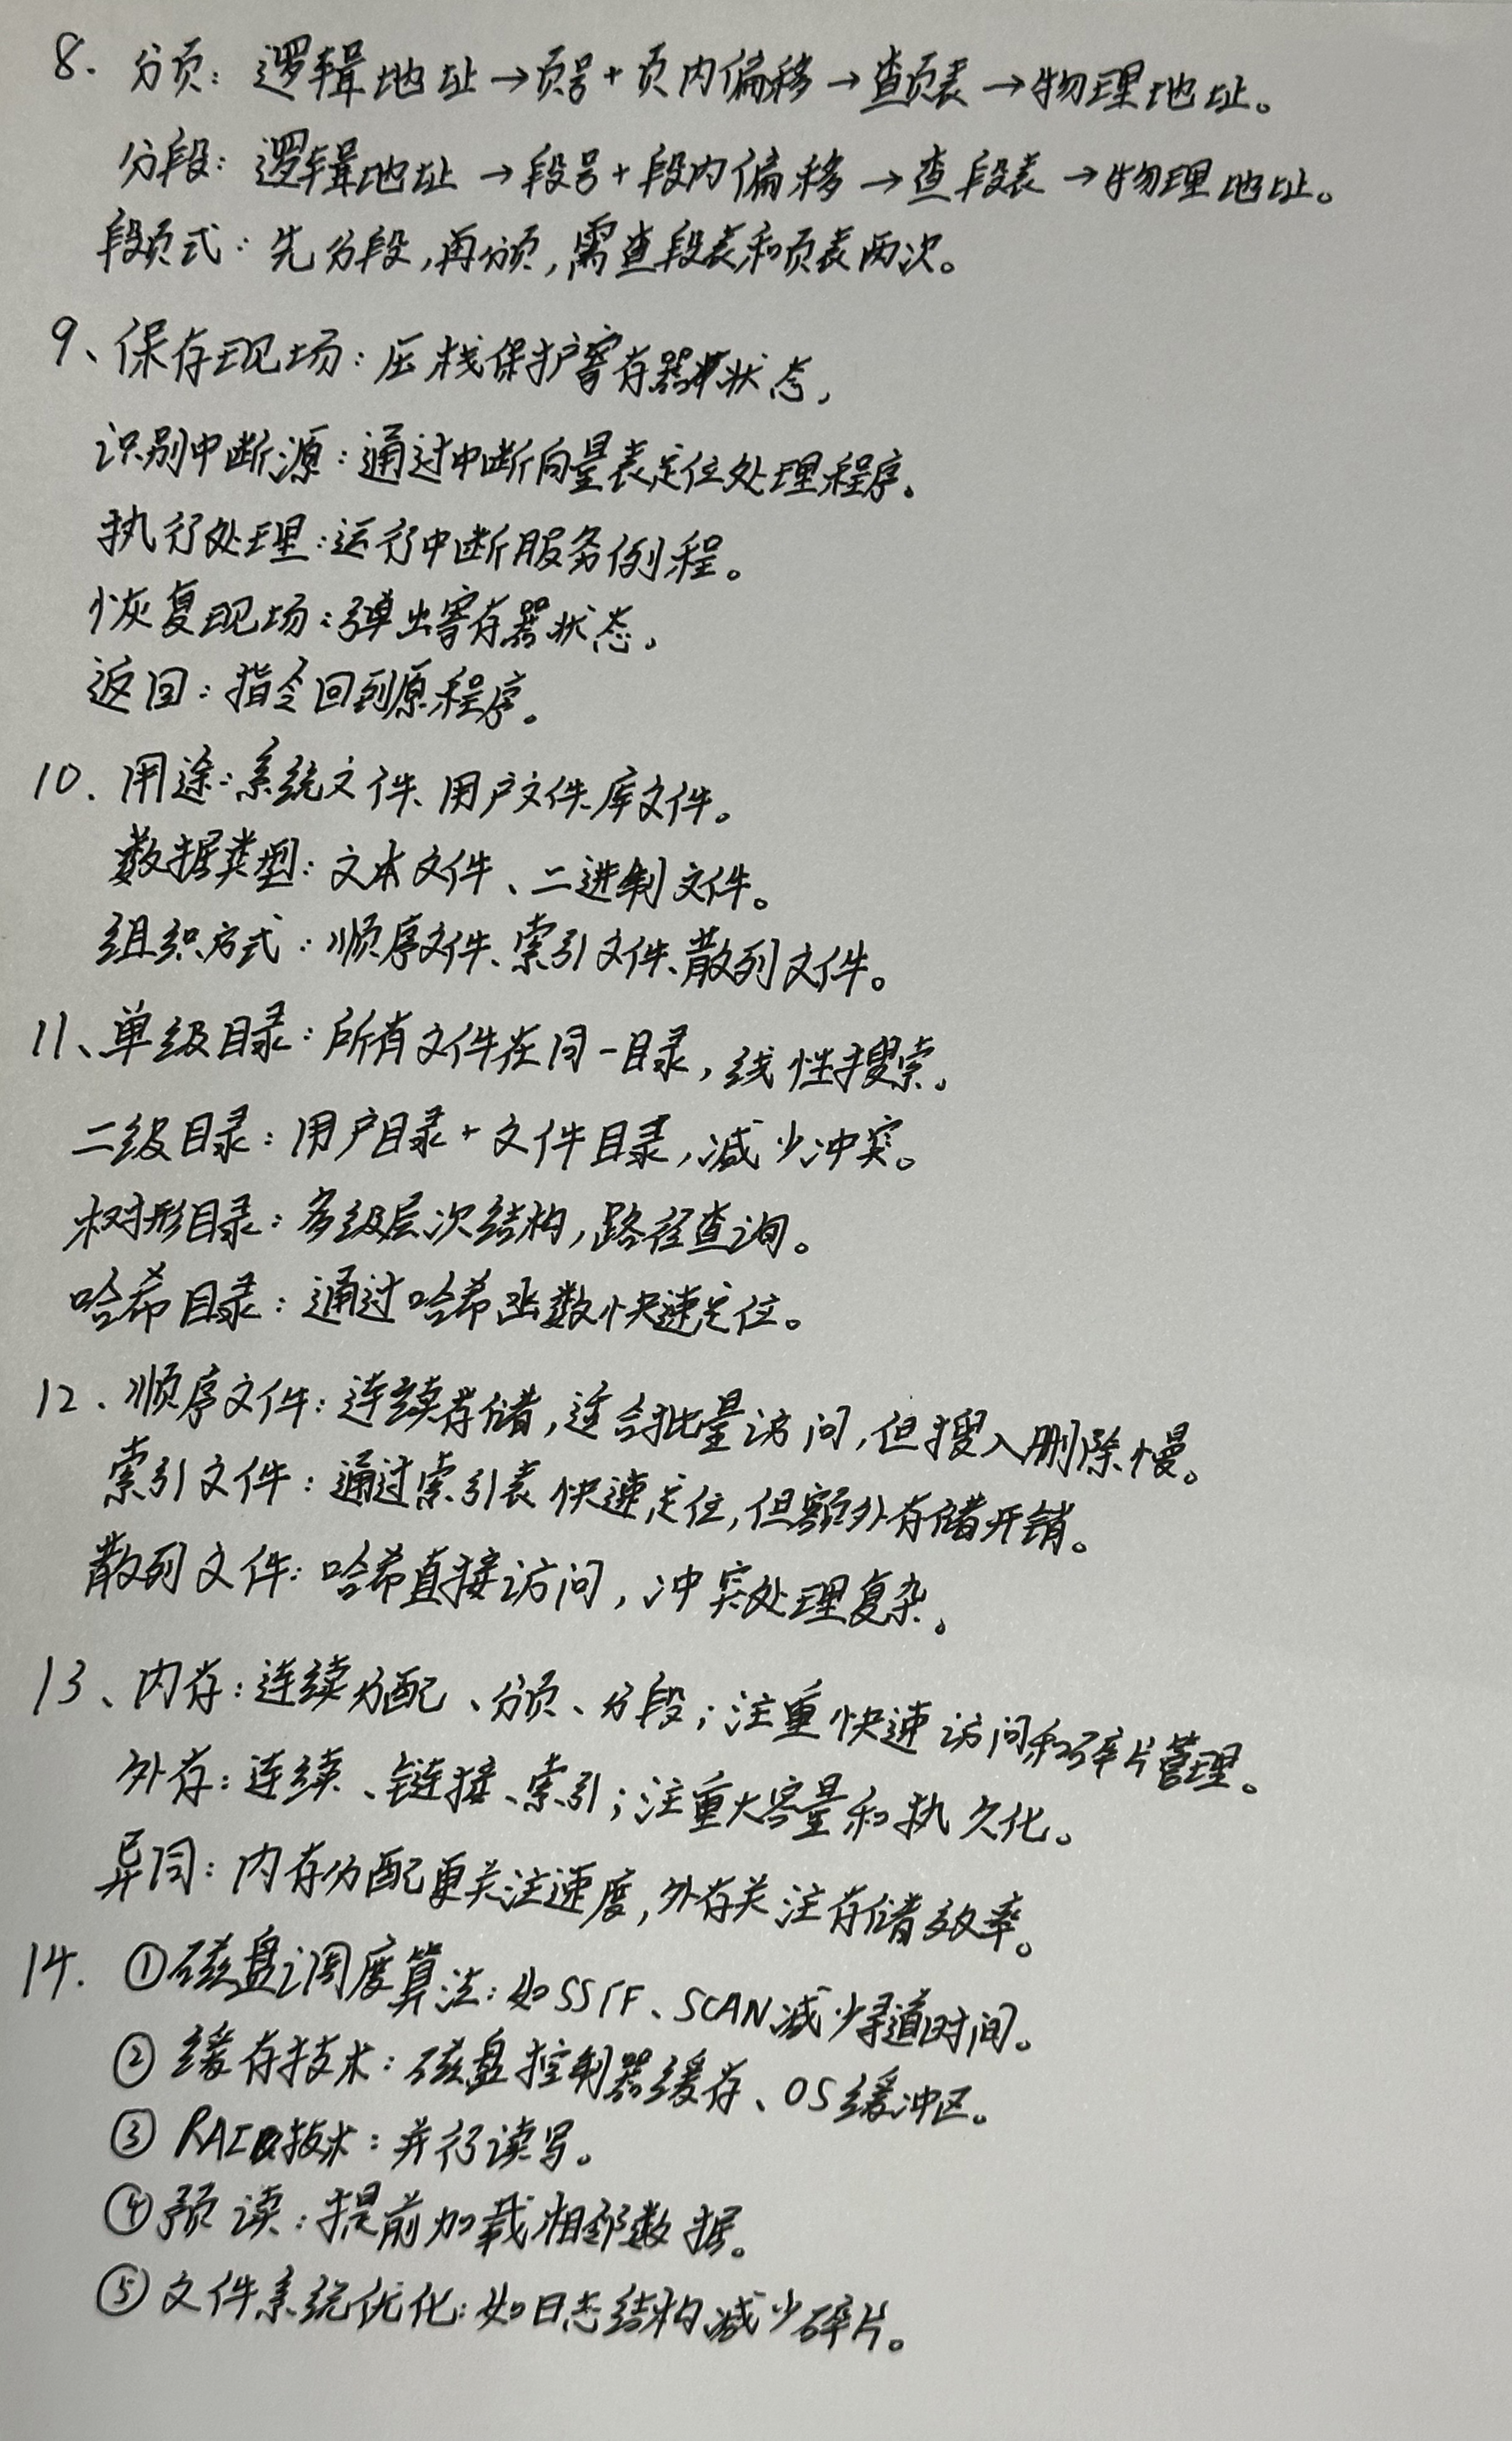 8. 分页：逻辑地址→页号+页内偏移→查页表→物理地址。
分段：逻辑地址→段号+段内偏移→查段表→物理地址。
段页式：先分段，再分页，需查段表和页表两次。
9、保存现场：压栈保护寄存器状态，
识别中断源：通过中断向量表定位处理程序。
执行处理：运行中断服务例程。
恢复现场：弹出寄存器状态。
返回：指令回到原程序。
10. 用途：系统文件、用户文件、库文件。
数据类型：文本文件、二进制文件。
组织方式：顺序文件、索引文件、散列文件。
11、单级目录：所有文件在同一目录，线性搜索。
二级目录：用户目录+文件目录，减少冲突。
树形目录：多级层次结构，路径查询。
哈希目录：通过哈希函数快速定位。
12. 顺序文件：连续存储，适合批量访问，但搜入删除慢。
索引文件：通过索引表快速定位，但额外存储开销。
散列文件：哈希直接访问，冲突处理复杂。
13、内存：连续分配、分页、分段；注重快速访问和碎片管理。
外存：连续、链接、索引；注重大容量和执久化。
异同：内存分配更关注速度，外存关注存储效率。
14. ①磁盘调度算法：如SSTF、SCAN减少寻道时间。
②缓存技术：磁盘控制器缓存、OS缓冲区。
③RAID技术：并行读写。
④预读：提前加载相邻数据。
⑤文件系统优化：如日志结构减少碎片。